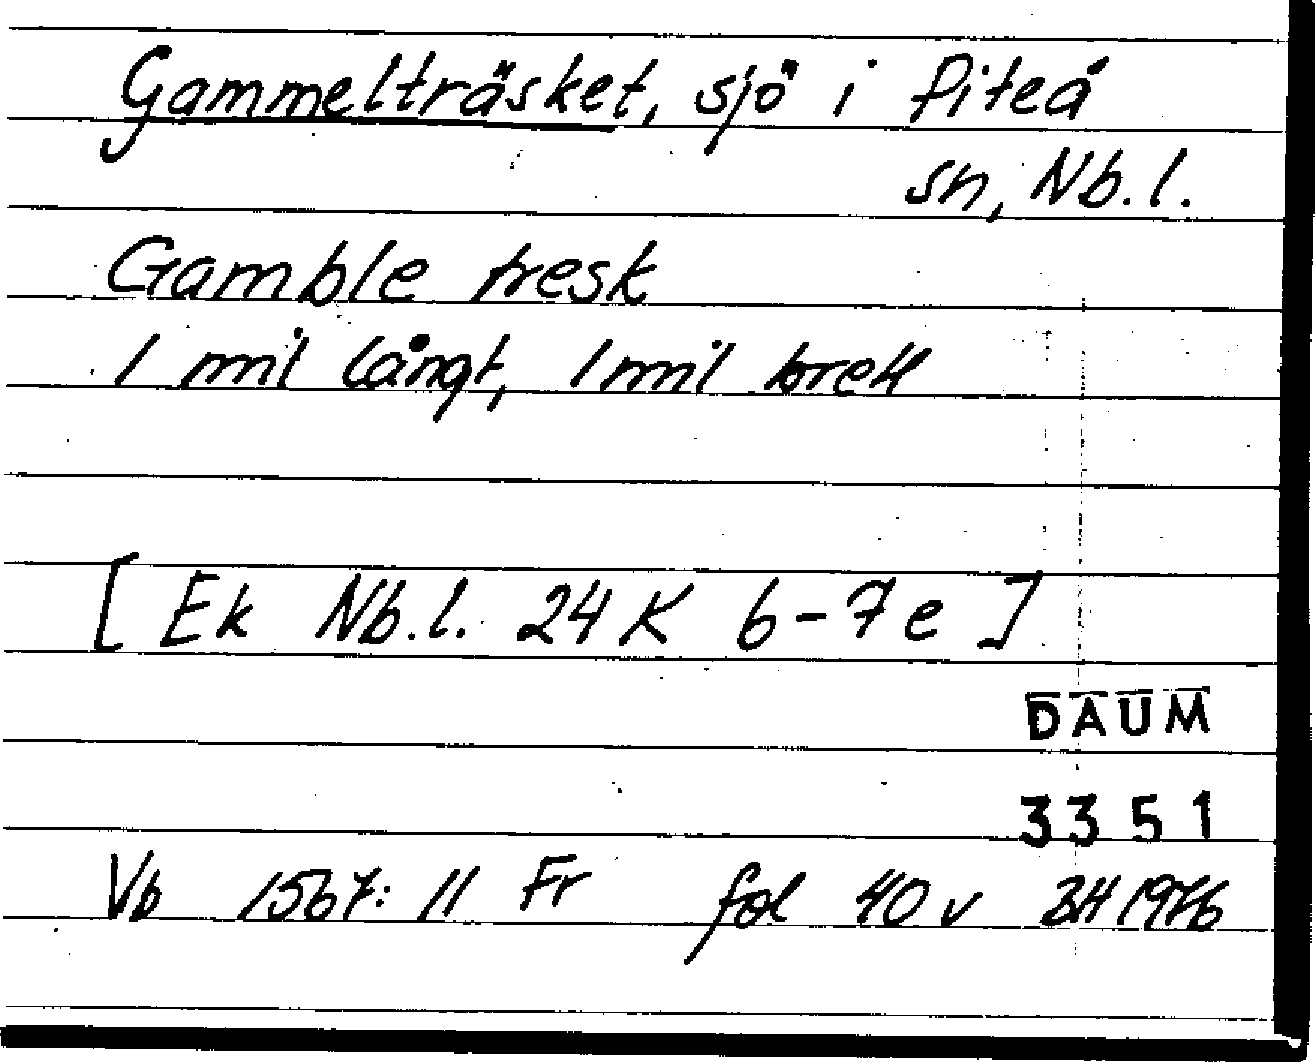 Gammelträsket, sjö i Piteå
sn, Nb.l.
Gamble tresk
1 mil långt, 1 mil brett
[ Ek Nb.l. 24 K 6-7 e ]
DAUM
3351
Vb 1567: 11 Fr fol 40 v BH 1976